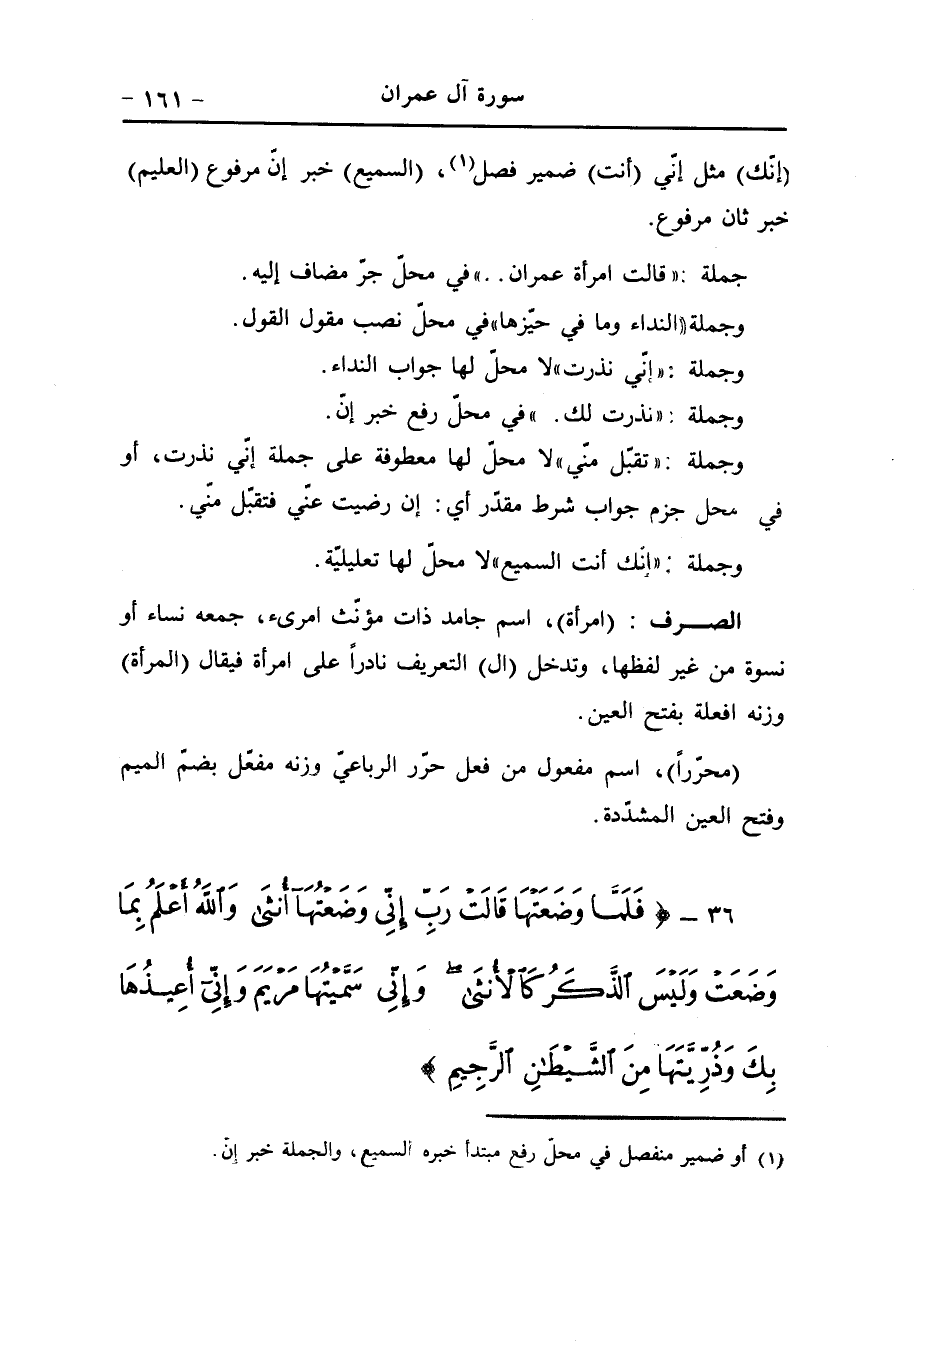 سورة آل عمران - ١٦١ -
(إنّك) مثل إنّي (أنت) ضمير فصل(١)، (السميع) خبر إنّ مرفوع (العليم)
خبر ثان مرفوع.
جملة : «قالت امرأة عمران . . » في محلّ جرّ مضاف إليه.
وجملة «النداء وما في حيّزها» في محلّ نصب مقول القول.
وجملة : «إنّي نذرت» لا محلّ لها جواب النداء.
وجملة : «نذرت لك . » في محلّ رفع خبر إنّ.
وجملة : «تقبّل منّي» لا محلّ لها معطوفة على جملة إنّي نذرت، أو
في محل جزم جواب شرط مقدّر أي: إن رضيت عنّي فتقبّل منّي.
وجملة : «إنّك أنت السميع» لا محلّ لها تعليليّة.
الصرف : (امرأة)، اسم جامد ذات مؤنّث امرىء، جمعه نساء أو
نسوة من غير لفظها، وتدخل (ال) التعريف نادراً على امرأة فيقال (المرأة)
وزنه افعلة بفتح العين.
(محرّراً)، اسم مفعول من فعل حرّر الرباعيّ وزنه مفعّل بضمّ الميم
وفتح العين المشدّدة.
٣٦ - ﴿ فَلَمَّا وَضَعَتْهَا قَالَتْ رَبِّ إِنِّي وَضَعْتُهَآ أُنثَىٰ وَٱللَّهُ أَعْلَمُ بِمَا
وَضَعَتْ وَلَيْسَ ٱلذَّكَرُ كَٱلْأُنثَىٰ ۖ وَإِنِّي سَمَّيْتُهَا مَرْيَمَ وَإِنِّيٓ أُعِيذُهَا
بِكَ وَذُرِّيَّتَهَا مِنَ ٱلشَّيْطَٰنِ ٱلرَّجِيمِ ﴾
(١) أو ضمير منفصل في محلّ رفع مبتدأ خبره السميع، والجملة خبر إنّ.